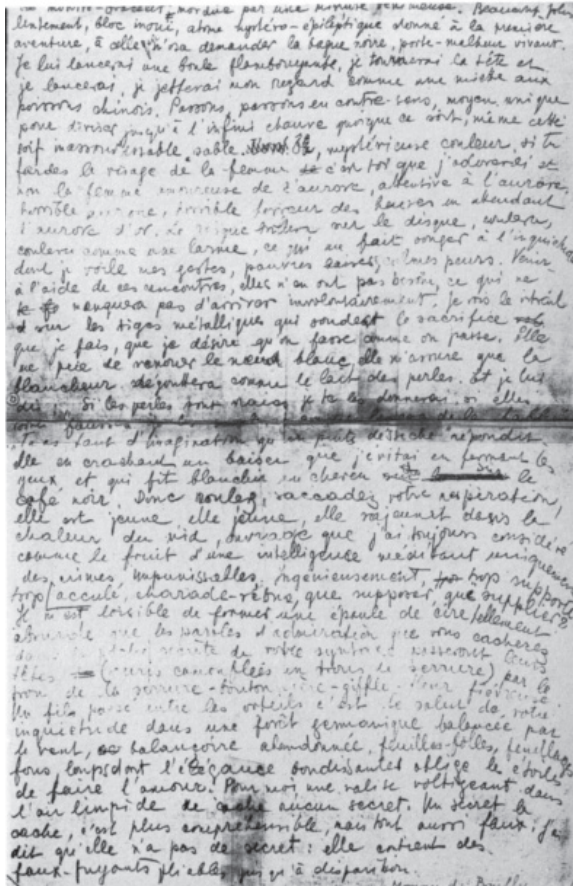 mordue par une
lentement, bloc inouï, atome hystéro-épileptique donné à la première
aventure, à celle, n'osa demander la bague noire, porte-malheur vivant.
Je lui lancerai une boule flamboyante, je tournerai la tête et
je lancerai, je jetterai mon regard comme une miche aux
poissons chinois. Passons, passons en contre-sens, moyen unique
pour diviser jusqu'à l'infini chauve quoique ce sort, même cette
soif inassouvissable, sable. mystérieuse couleur, si tu
fardes le visage de la femme c'est toi que j'adorerai et
non la femme amoureuse de l'aurore, attentive à l'aurore,
horrible aurore, horrible des heures en attendant
l'aurore d'or. Le disque sur le disque, couleur,
couleur comme une larme, ce qui me fait songer à l'inquiétude
dont je voile mes gestes, pauvres calmes peurs. Venir
à l'aide de ces rencontres, elles n'en ont pas besoin, ce qui ne
manquera pas d'arriver involontairement. Je vois le
sur les tiges métalliques qui soudent le sacrifice
que je fais, que je désire qu'on fasse comme on passe. Elle
me prie de renouer le nœud blanc, elle m'assure que la
blancheur comme le lait des perles. Et je lui
dis : Si les perles sont vraies je te les donnerai, si elles
sont fausses
d'imagination qu'un puits répondit
elle en crachant un baiser que j'évitai en fermant les
yeux, et qui fit blanchir un cheveu le
café noir. Donc roulez, saccadez votre respiration,
elle est jeune, elle jeûne, elle rajeunit dans la
chaleur du nid, ouvrage que j'ai toujours considéré
comme le fruit d'une intelligence méditant uniquement
des crimes, impunissables, ingénieusement, trop supporté
trop acculé, charade-rébus, que supposer, que supplier?
Il m'est loisible de former une épaule de cire tellement
absurde que les paroles d'admiration que vous cacherez
dans la secrète de votre passeront leurs
têtes (souris camouflées en trous de serrure) par le
trou de la serrure-bouton gifle-fleur
Un fils passe entre les orteils c'est le salut de votre
inquiétude dans une forêt germanique balancée par
le vent, balançoire abandonnée, feuilles-folles, feuillages
fous, loups dont l'élégance bondissante oblige les étoiles
de faire l'amour. Pour moi, une valise voltigeant dans
l'air limpide ne cache aucun secret. Un secret la
cache, c'est plus compréhensible, mais tout aussi faux. J'ai
dit qu'elle n'a pas de secret : elle contient des
faux-fuyants pliables jusqu'à disparition.